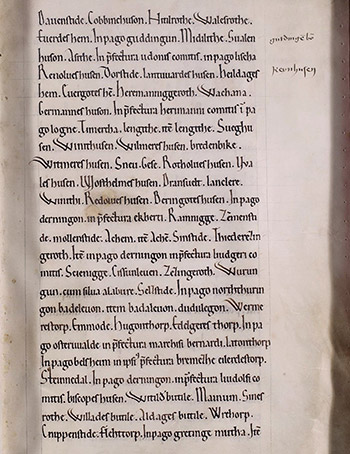 Dauenstide. Cobbinchuson. Hitilrothe. Walesrothe.
fuerdeshem. In pago guddingun. Midilithe. Sualen
guddingē hē
huson. Asthe. In pfectura udonis comitis. in pago lischa
Renolueshusen. Dorstide. lantuuardeshusen. heildages
Reinhusen
hem. Cuergotes hē. Heremanniggeroth. Wachana.
Germanneshuson. In pfectura herimanni comitis ī pa
go logne. Timertha. lengithe. itē lengithe. Sueghu
sen. Winithusen. Wilmereshusen. bredenbike.
Witmereshusen. Sneu. Gese. Rotholueshusen. Yva
leshusen. Wostheimeshusen. Dransuelt. lanclere.
Winithi. Redolueshusen. Beringoteshusen. In pago
derningon. in pfectura ekberti. Rammigge. Zēmensti
de. mollenstide. Achem. itē Achē. Sinistide. Thiederzin
geroth. Itē in pago derningon in pfectura budgeri co
mitis. Seuenigge. Cissiunleuen. Zelingeroth. Wurun
gun. cum silua alabure. Selstide. In pago norththurun
gon badeleuon. itēm badaleuon. dudulegon. Werme
restorp. Emmode. Hugonthorp. Eddgeres thorp. In pa
go osteruualde in pfectura marchisi bernardi. latonthorp
In pago belsheim in ipsi pfectura bremethe eilerdestorp.
Steinnedal. In pago derningon. in pfectura liudolfi co
mitis. biscopeshusen. Witild buttle. Mainum. Sines
rothe. Willades buttle. Aldages buttle. Wrthorp.
Cnippenstide. Echttorp. In pago gretinge mutha. Itē